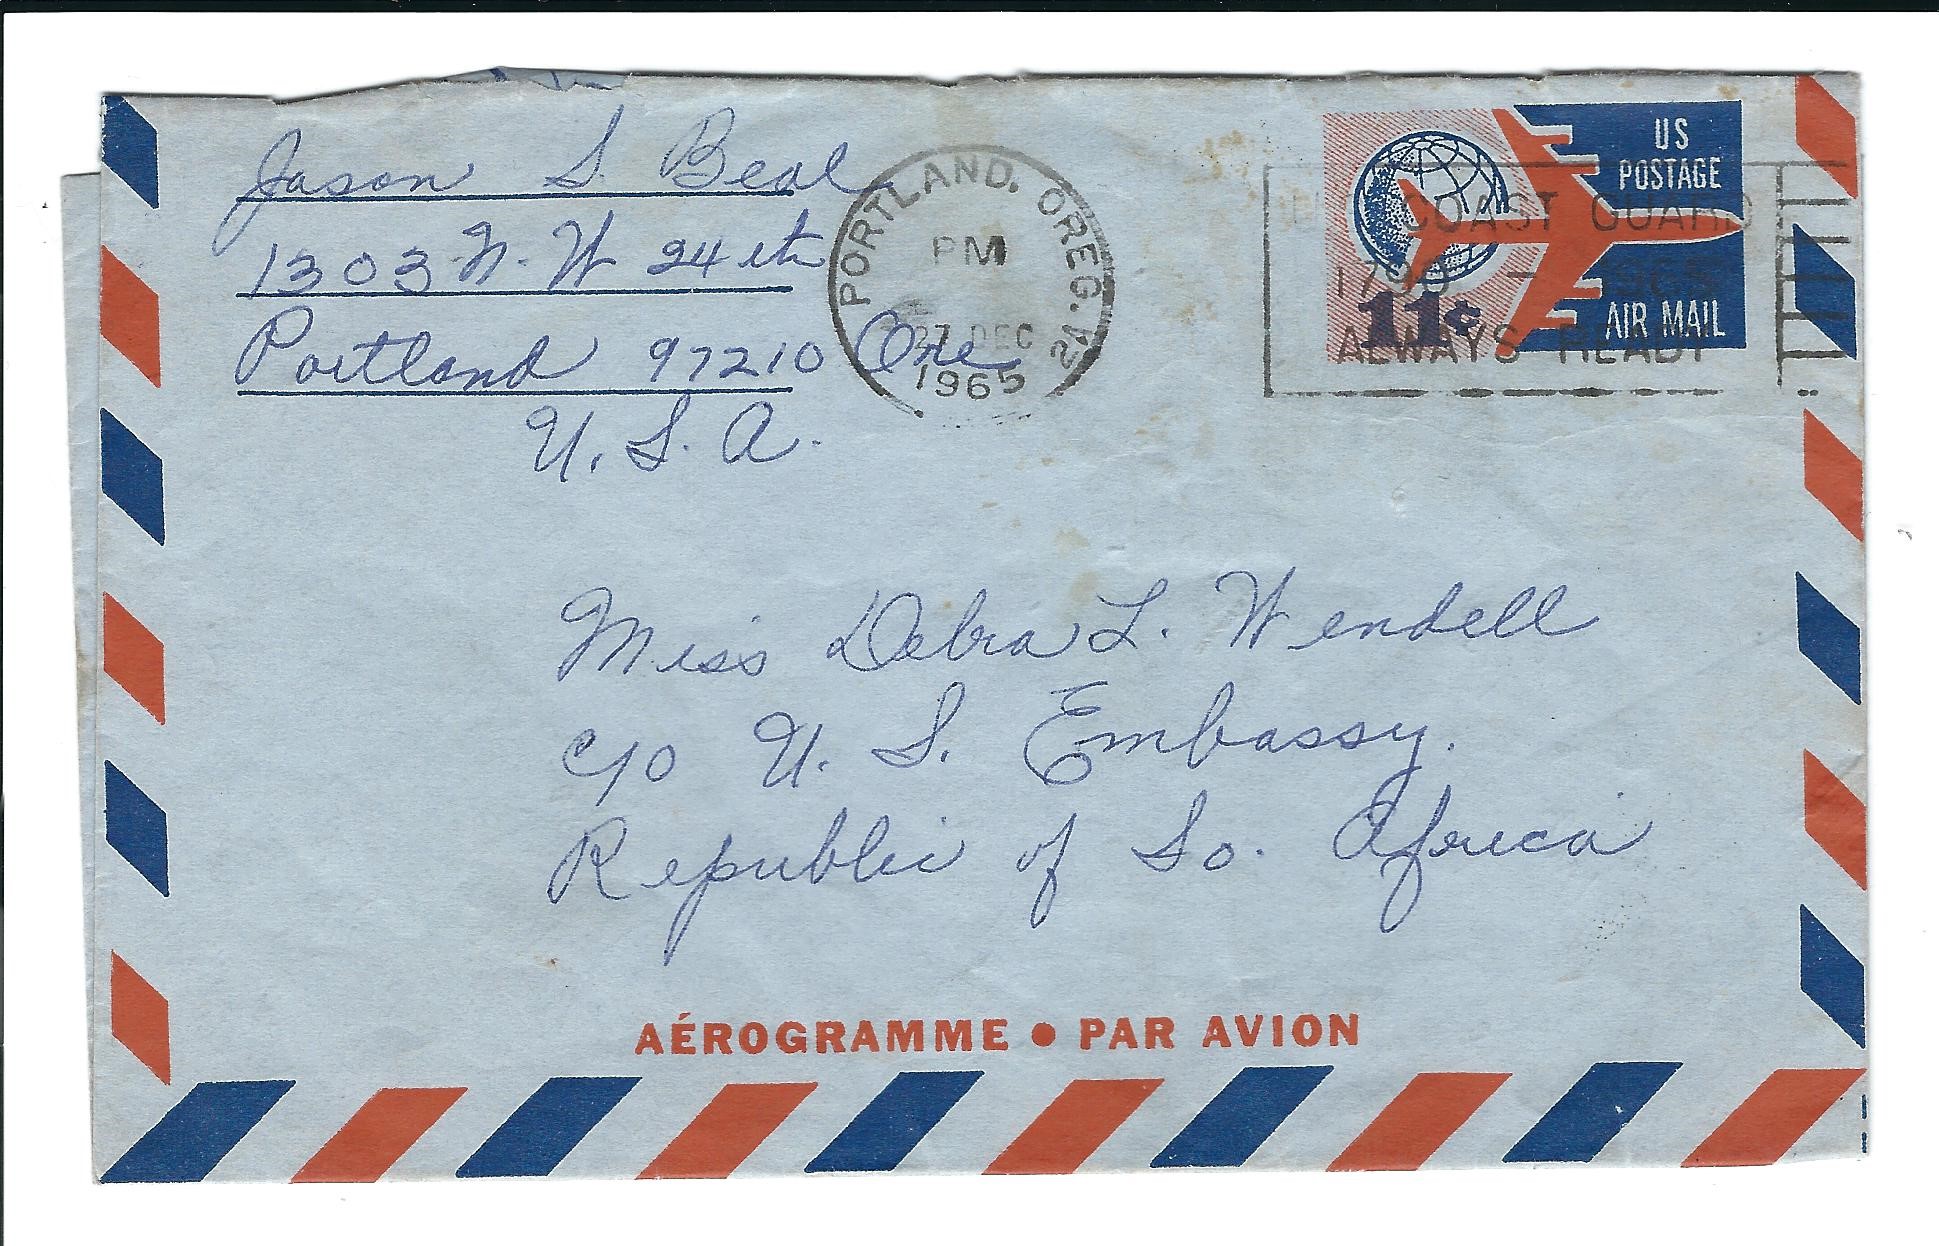 Jason S. Beal
1303 N. W 24 th
Portland 97210 Ore
U. S. A.
PORTLAND, OREG.
PM
27 DEC
1965
US
POSTAGE
11¢
AIR MAIL
COAST GUARD
1790 - 1965
ALWAYS READY
Miss Debra L. Wendell
c/o U. S. Embassy.
Republic of So. Africa
AÉROGRAMME • PAR AVION